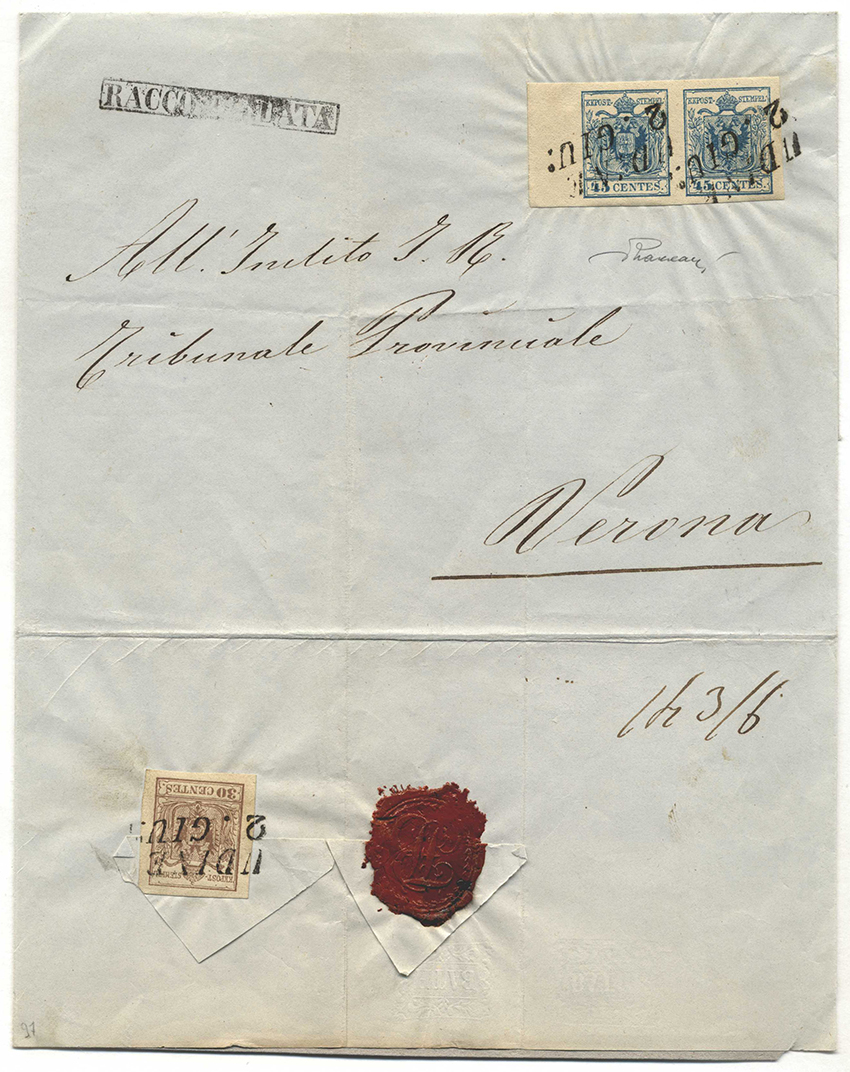 RACCOMANDATA
KKPOST-STEMPEL KKPOST-STEMPEL
45 CENTES. 45 CENTES.
UDINE UDINE
2. GIU: 2. GIU:
All'. Inclito I. R.
Tribunale Provinciale
Verona
3/6
30 CENTES.
KKPOST-STEMPEL
UDINE
2. GIU:
97